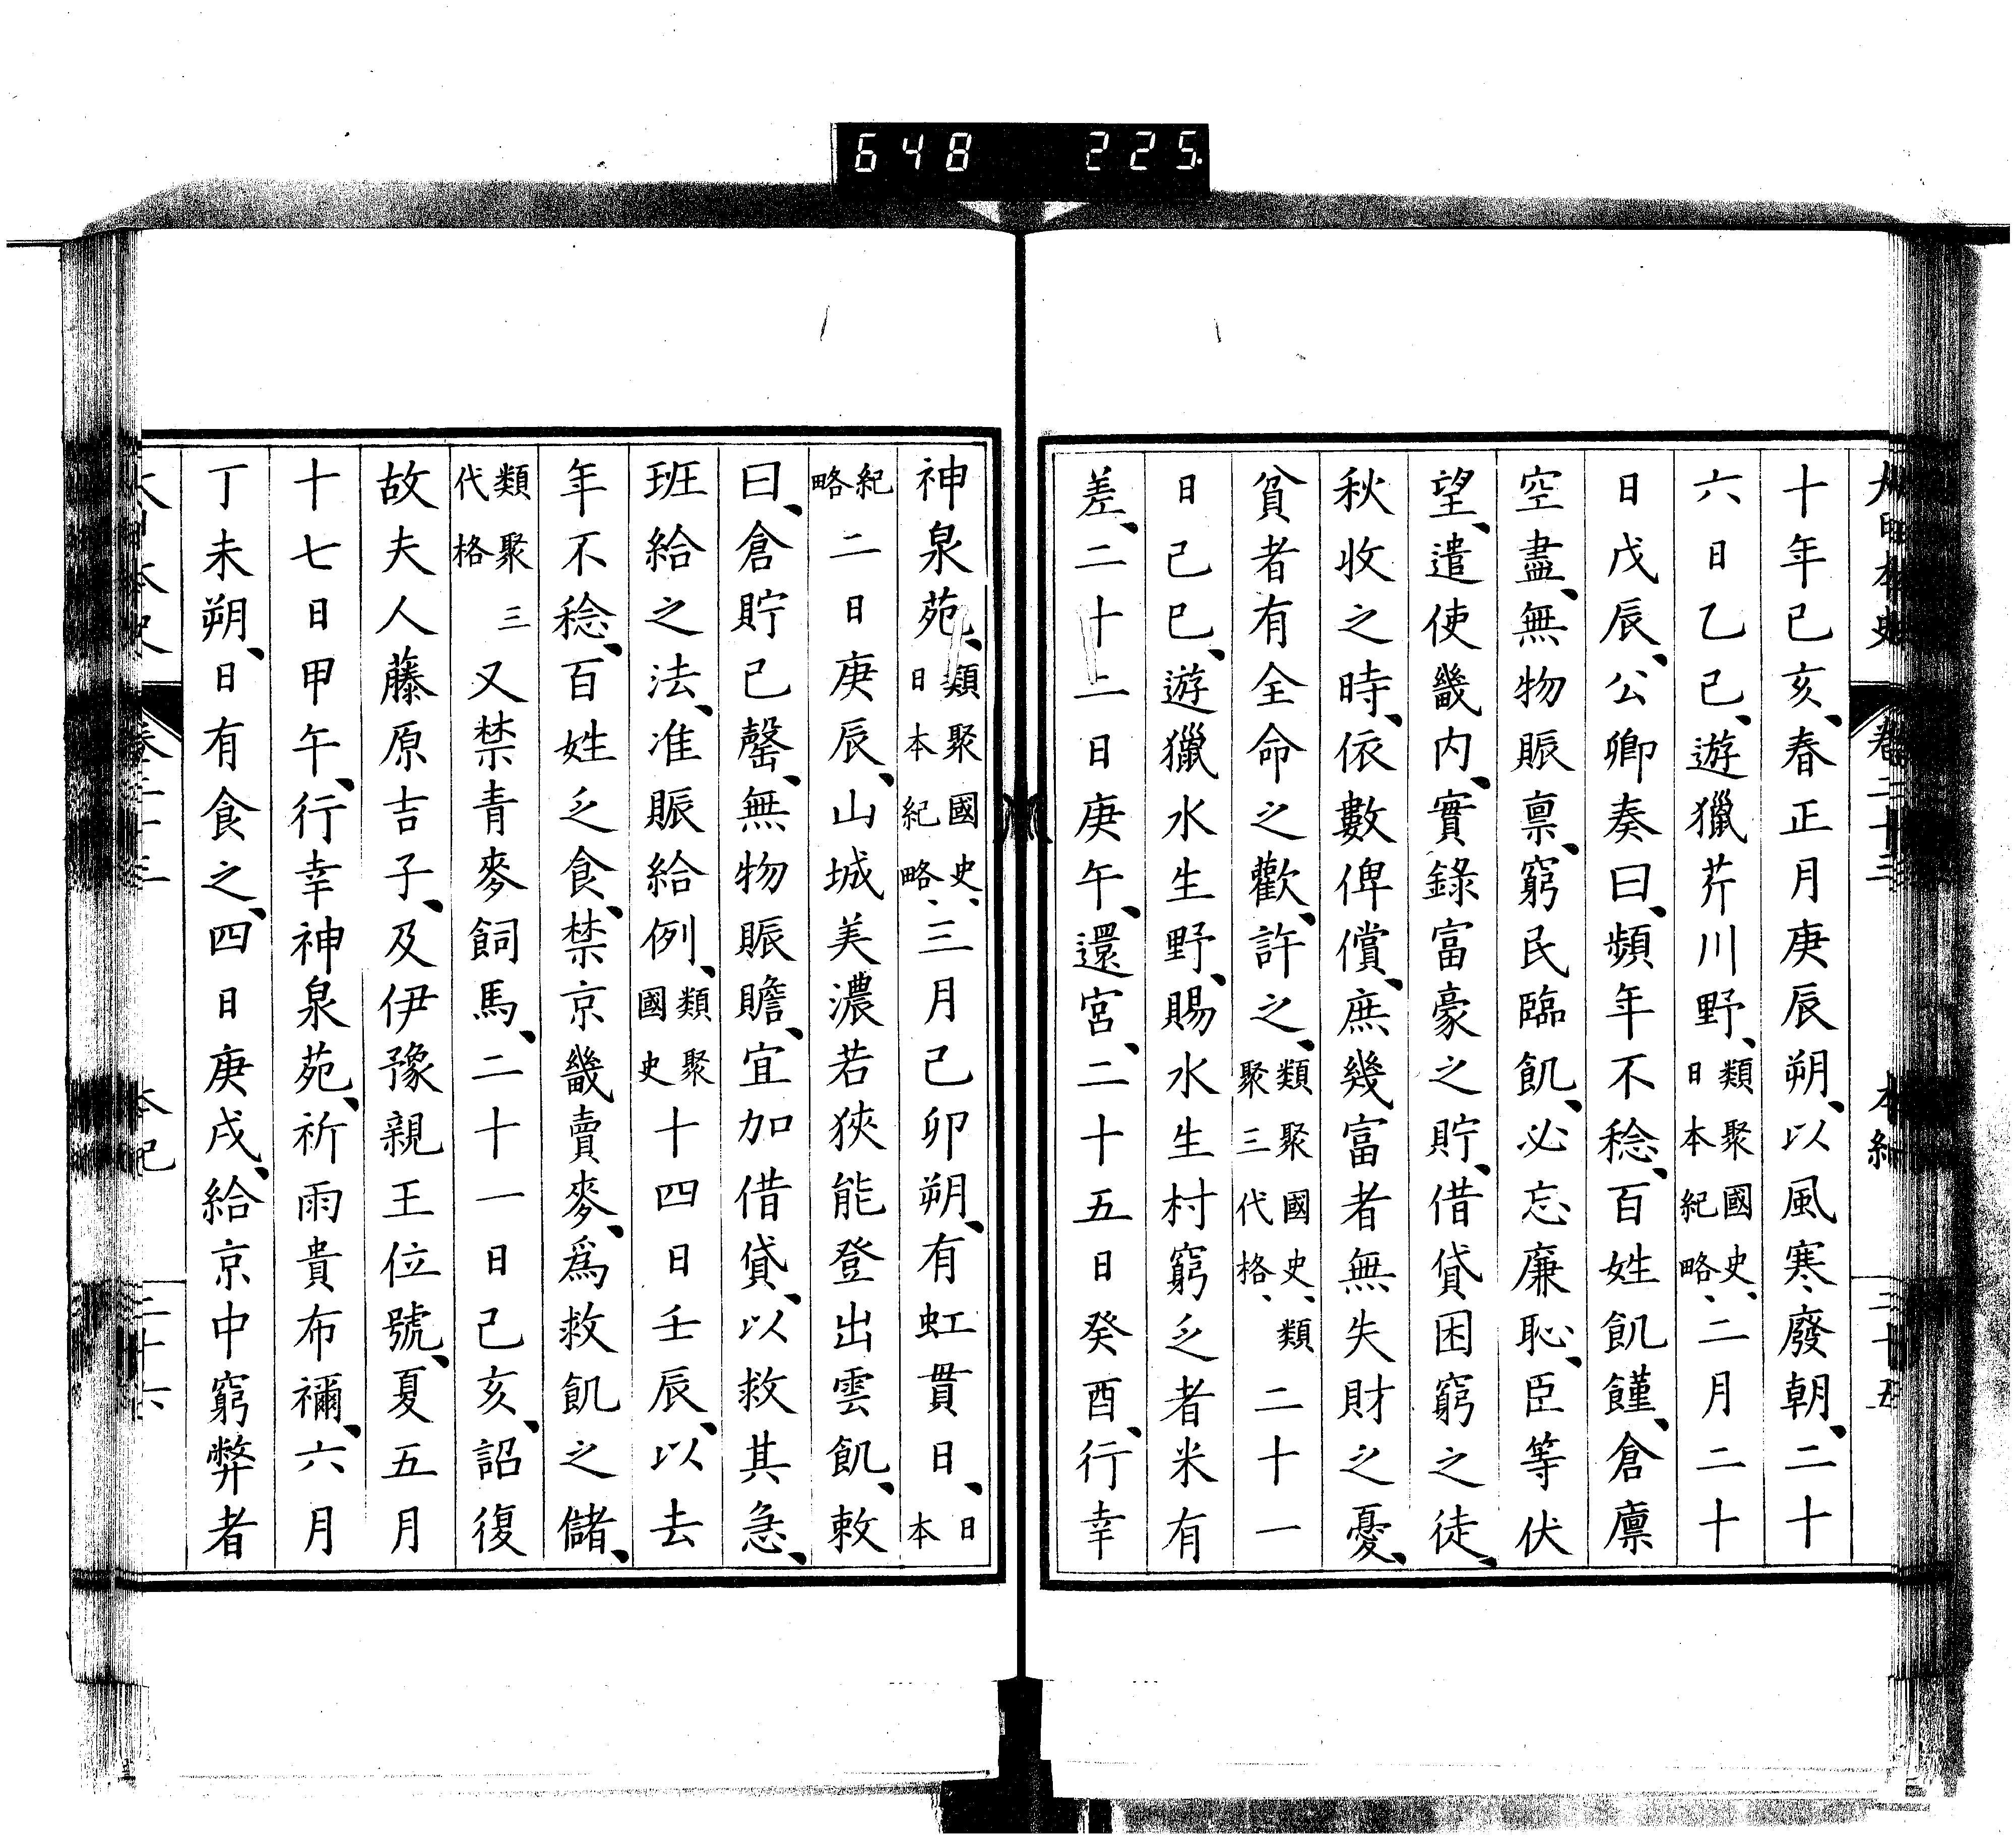 648 225
大日本史 卷二十三 本紀 二十五
十年己亥、春正月庚辰朔、以風寒、廢朝、二十
六日乙巳、遊獵芹川野、類聚國史、日本紀略、二月二十
日戊辰、公卿奏曰、頻年不稔、百姓飢饉、倉廩
空盡、無物賑禀、窮民臨飢、必忘廉恥、臣等伏
望、遣使畿內、實錄富豪之貯、借貸困窮之徒、
秋收之時、依數俾償、庶幾富者無失財之憂、
貧者有全命之歡、許之、類聚國史、類聚三代格、二十一
日己巳、遊獵水生野、賜水生村窮乏者米有
差、二十二日庚午、還宮、二十五日癸酉、行幸
神泉苑、類聚國史、日本紀略、三月己卯朔、有虹貫日、日本
紀略二日庚辰、山城美濃若狹能登出雲飢、敕
曰、倉貯已罄、無物賑贍、宜加借貸、以救其急、
班給之法、准賑給例、類聚國史十四日壬辰、以去
年不稔、百姓乏食、禁京畿賣麥、爲救飢之儲、
類聚三代格又禁青麥飼馬、二十一日己亥、詔復
故夫人藤原吉子、及伊豫親王位號、夏五月
十七日甲午、行幸神泉苑、祈雨貴布禰、六月
丁未朔、日有食之、四日庚戌、給京中窮弊者
大日本史 卷二十三 本紀 二十六